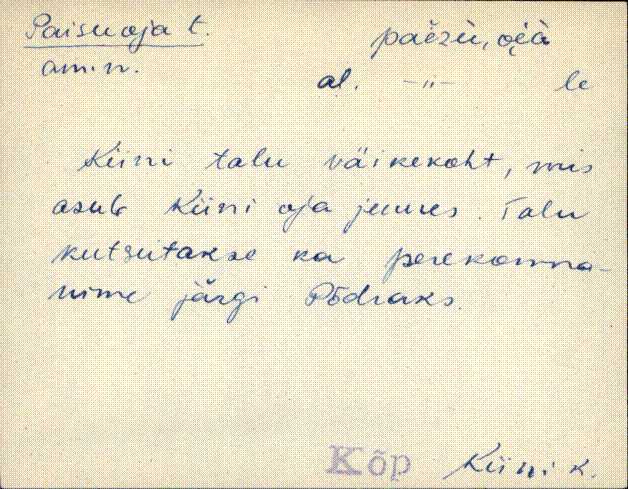 Paisuoja t. paĕzù, oi̯à
am.n. al. -"- le
Kiini talu väikekoht, mis
asub Kiini oja juures. Talu
kutsutakse ka perekonna-
nime järgi Põdraks.
Kõp Kiini k.